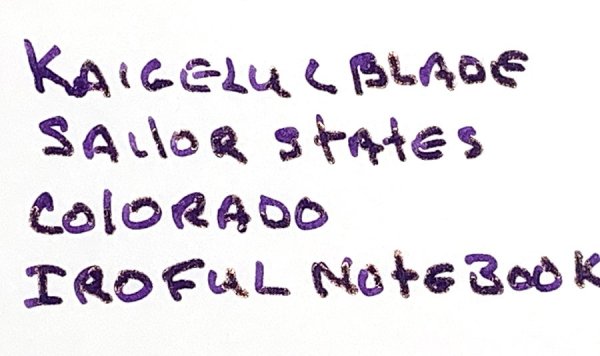 KAIGELU C BLADE
SAILOR STATES
COLORADO
IROFUL NOTEBOOK